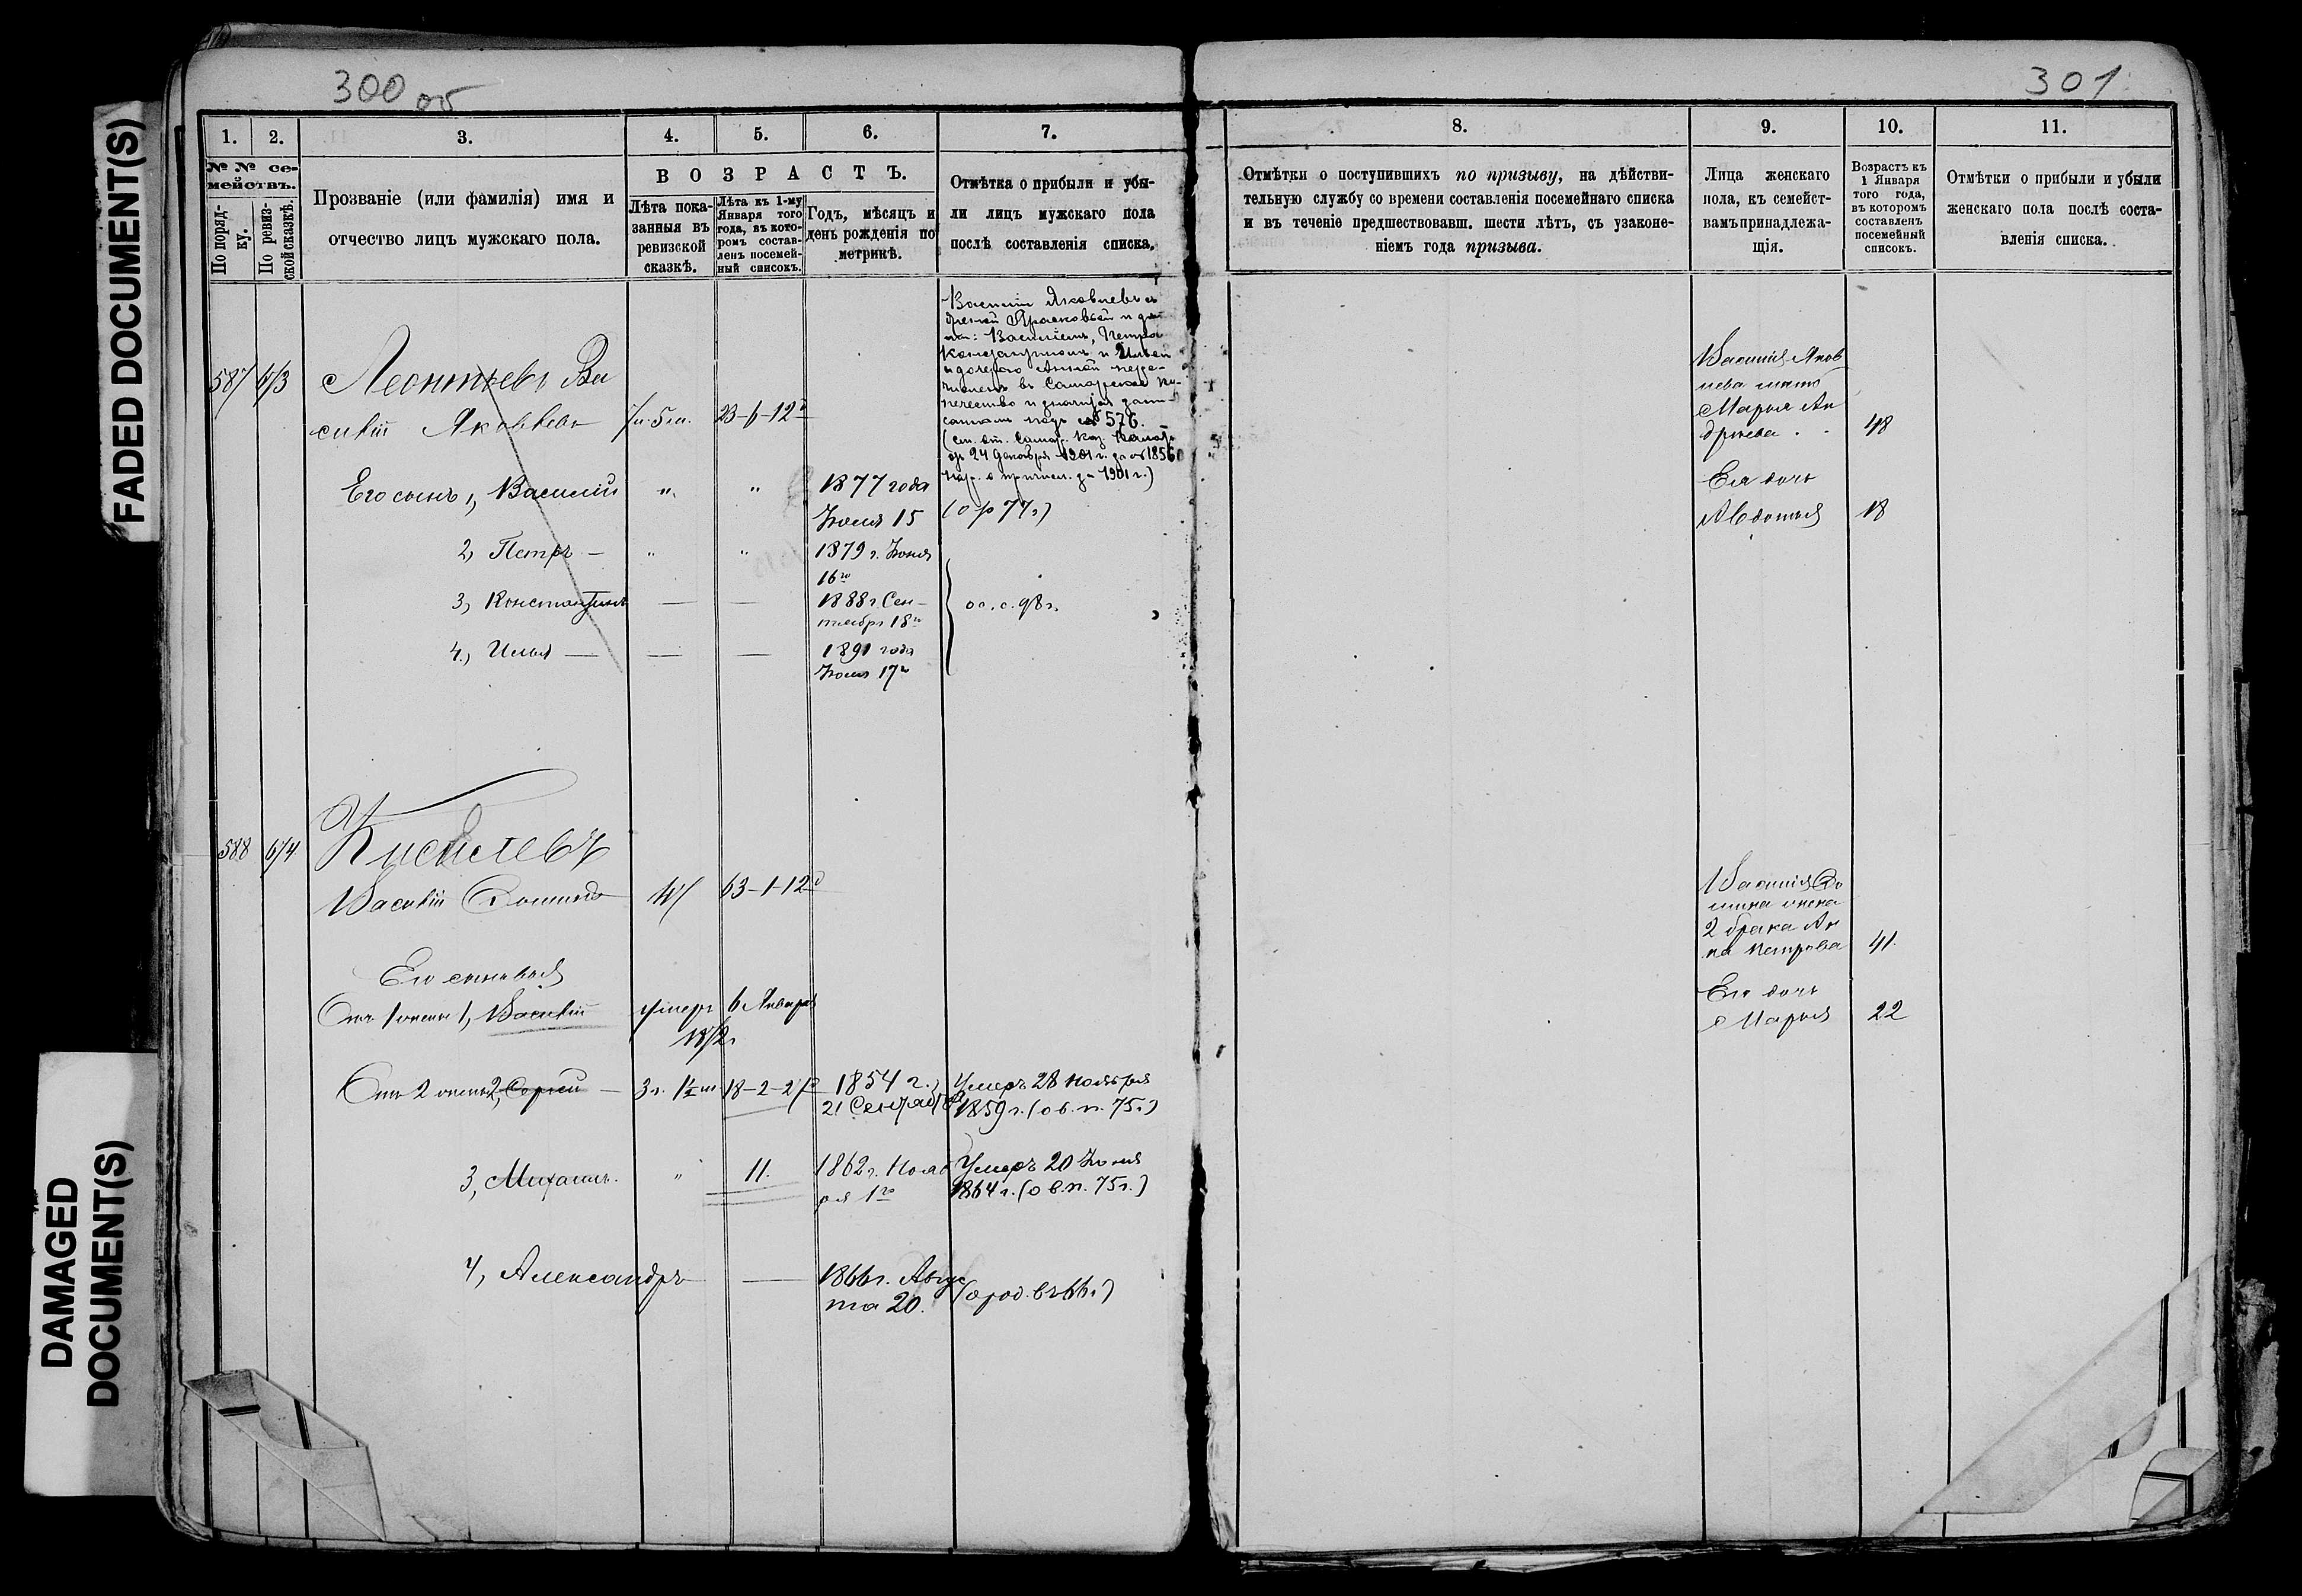 FADED DOCUMENT(S)
DAMAGED
DOCUMENT(S)
300 об
1.
2.
3.
4.
5.
6.
7.
№ № се-
мействъ.
По поряд-
ку.
По ревиз-
ской сказкѣ.
Прозваніе (или фамилія) имя и
отчество лицъ мужскаго пола.
ВОЗРАСТЪ.
Лѣта пока-
занныя въ
ревизской
сказкѣ.
Лѣта къ 1-му
Января того
года, въ кото-
ромъ состав-
ленъ посемей-
ный списокъ.
Годъ, мѣсяцъ и
день рожденія по
метрикѣ.
Отмѣтка о прибыли и убы-
ли лицъ мужскаго пола
послѣ составленія списка.
587
673
Леонтьевъ Ва
силій Яковлевъ
23-6-12
Василій Яковлевъ съ
женой Прасковьей и дѣть
ми: Василіемъ, Петромъ
Константиномъ и Ильей
и дочерью Анной пере-
численъ въ Самарское ку-
печество и значатся запи-
саннымъ подъ № 576.
(ст. от. Самар. Каз. Палаты
отъ 24 Декабря 1901 г. за № 1856
пер. о причисл. за 1901 г.)
Его сынъ 1, Василій
1877 года
Іюля 15
(о р 77 г.)
2, Петръ
1879 г. Іюня
16го
3, Константинъ
1888 г. Сен-
тября 18го
о с. с. 98 г.
4, Илья
1891 года
Іюля 17го
588
674
Киселевъ
Василій Фоминъ
47
63-1-12
Его сыновья
Отъ 1 жены 1, Василій
умеръ 6 Января
1872 г.
Отъ 2 жены 2, Сергѣй
3 г. 1½ м
18-2-27
1854 г.,
21 Сентября
Умеръ 28 Ноября
1859 г. (о в. п. 75 г.)
3, Михаилъ.
11.
1862 г. Нояб
ря 1го
Умеръ 20 Іюня
1864 г. (о в. п. 75 г.)
4, Александръ
1866 г. Авгус
та 20.
(о род. въ 66 г.)
301
8.
9.
10.
11.
Отмѣтки о поступившихъ по призыву, на дѣйстви-
тельную службу со времени составленія посемейнаго списка
и въ теченіе предшествовавш. шести лѣтъ, съ узаконе-
ніемъ года призыва.
Лица женскаго
пола, къ семейст-
вамъ принадлежа-
щія.
Возрастъ къ
1 Января
того года,
въ которомъ
составленъ
посемейный
списокъ.
Отмѣтки о прибыли и убыли
женскаго пола послѣ соста-
вленія списка.
Василія Яков
лева мать
Марья Ан
дреева
48
Ея дочь
Авдотья
18
Василія Фо
мина жена
2 брака Ан
на Петрова
41
Ея дочь
Марья
22